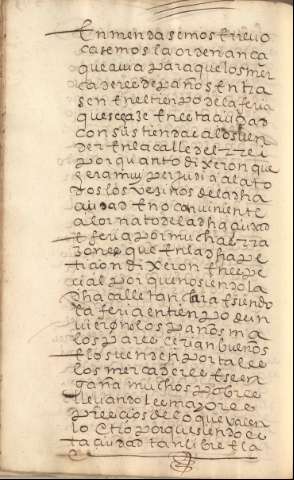 Enmendasemos E revo
casemos la ordenança
que avia para que los mer
caderes de paños En tra
sen En el tienpo de la feria
que se haze En esta çiudad
con sus tiendas a los ven
der En la calle del
por quanto dixeron que
hera muy perjudiçial a to
dos los vesinos de la dha
çiudad E no conviniente
al ornato de la dha çiudad
E feria por muchas rra
zones que En la dha pe
tiçion dixeron En espe
çial por que no siendo la
dha calle tan clara E siendo
la feria En tienpo de yn
vierno los paños ma
los pareçerian buenos
E los venden por tales
los mercaderes E se en
gaña muchos pobres
llevando les mayores
preçios de lo que valen
lo otro por que siendo es
ta çiudad tan libre E la